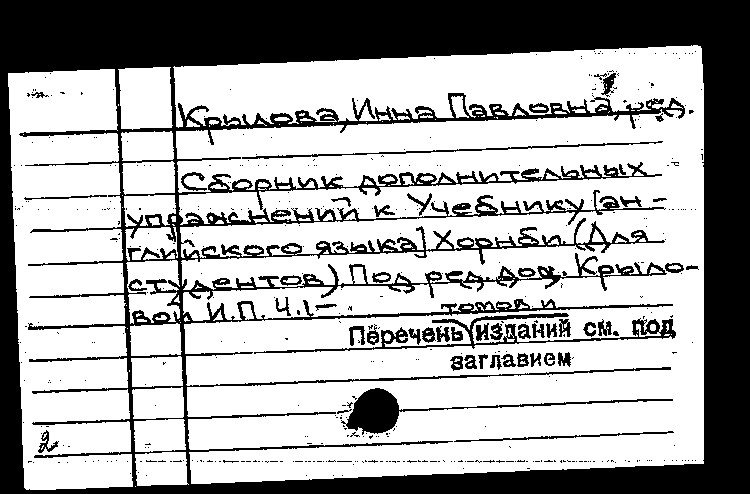 Крылова, Инна Павловна, ред.
Сборник дополнительных
упражнений к Учебнику [ан-
глийского языка] Хорнби. (Для
студентов). Под ред. доц. Крыло-
вой И.П. Ч.1-
томов и
Перечень изданий см. под
заглавием
2